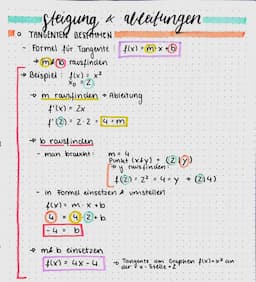 Steigung & Ableitungen
○ TANGENTEN BESTIMMEN
- Formel für Tangente: f(x) = m·x + b
→ m & b rausfinden
→ Beispiel: f(x) = x²
x₀ = 2
→ m rausfinden → Ableitung
f'(x) = 2x
f'(2) = 2·2 = 4 = m
→ b rausfinden
- man braucht: m = 4
Punkt (x/y) = (2/y)
→ y rausfinden:
f(2) = 2² = 4 = y → (2/4)
- in Formel einsetzen & umstellen
f(x) = m·x + b
4 = 4·2 + b
-4 = b
→ m & b einsetzen
f(x) = 4x - 4
→ Tangente am Graphen f(x) = x² an
der x-Stelle 2